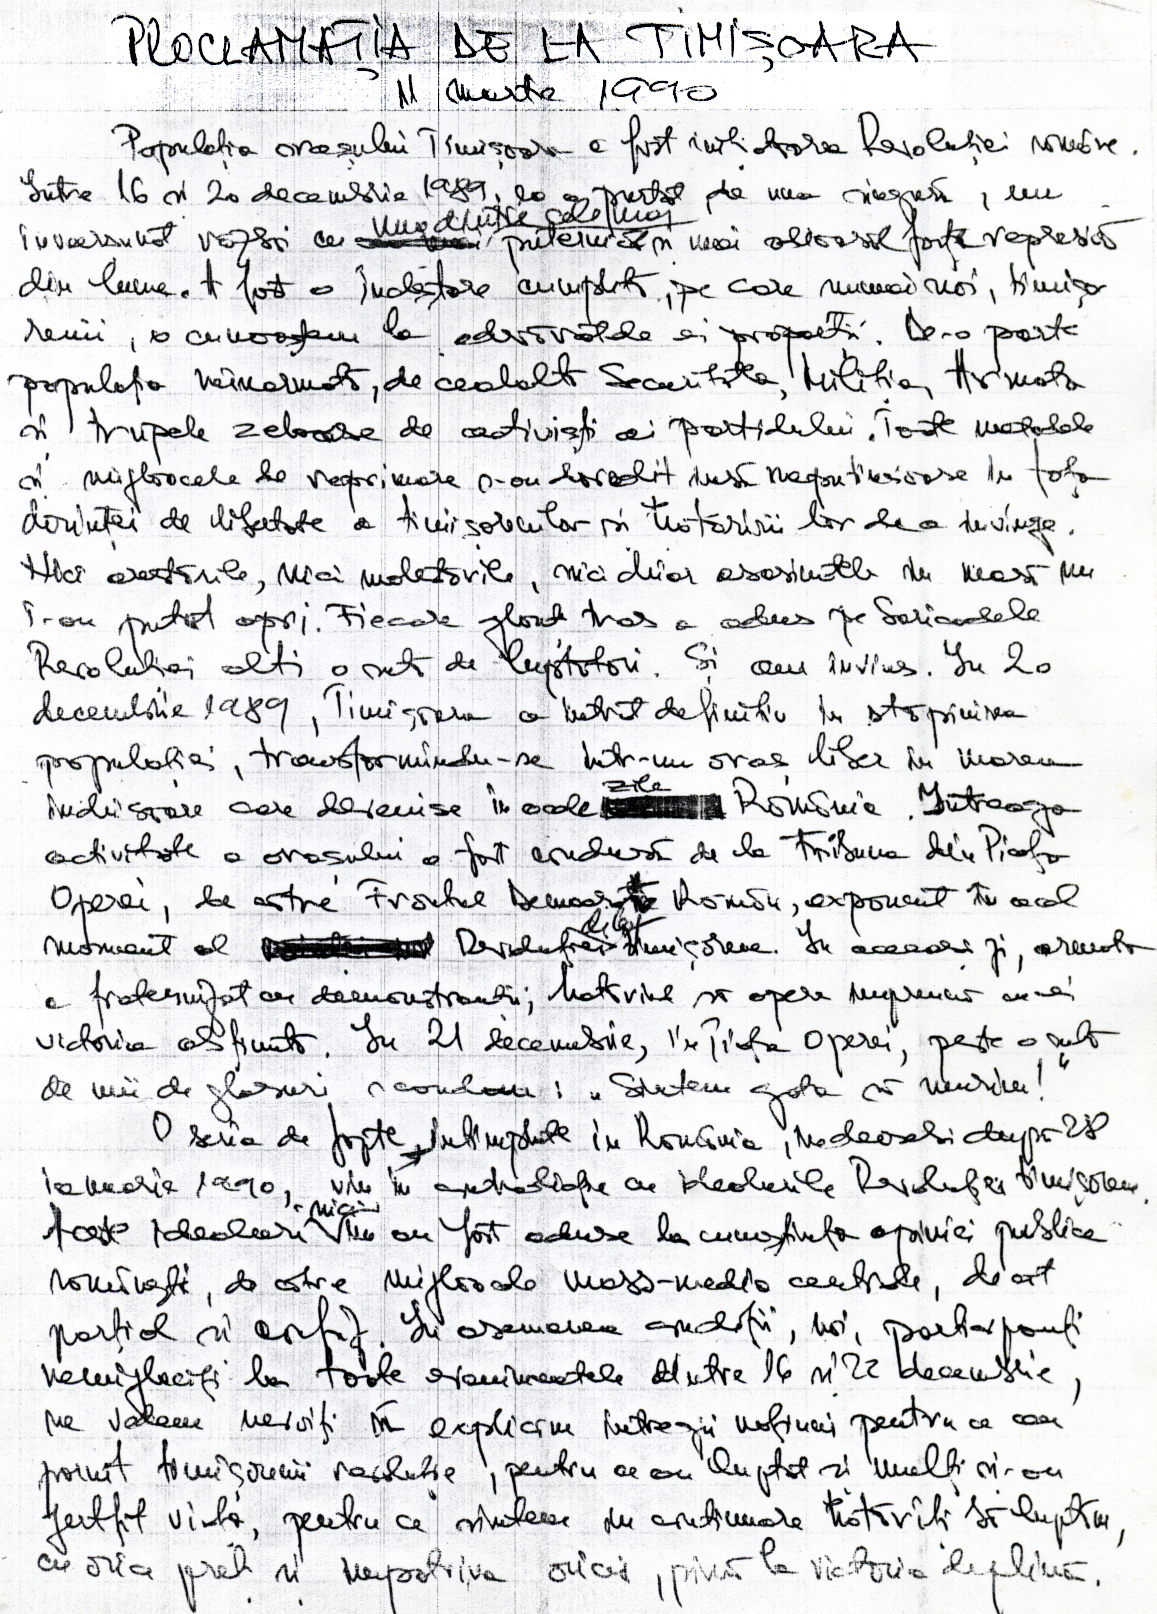 PROCLAMAȚIA DE LA TIMIȘOARA
11 martie 1990
Populația orașului Timișoara a fost inițiatoarea Revoluției române.
Între 16 și 20 decembrie 1989, ea a purtat de una singură, un
una dintre cele mai
înverșunat război cu puternice și mai odioase forțe represive
din lume. A fost o încleștare cumplită, pe care numai noi, timișo
renii, o cunoaștem la adevăratele ei proporții. De-o parte
populația neînarmată, de cealaltă Securitatea, Miliția, Armata
și trupele zeloase de activiști ai partidului. Toate metodele
și mijloacele de reprimare s-au dovedit însă neputincioase în fața
dorinței de libertate a timișorenilor și hotărârii lor de a învinge.
Nici arestările, nici molestările, nici chiar asasinatele în masă nu
i-au putut opri. Fiecare glonț tras a adus pe baricadele
Revoluției alți o sută de luptători. Și am învins. În 20
decembrie 1989, Timișoara a intrat definitiv în stăpînirea
populației, transformîndu-se într-un oraș liber în marea
zile
închisoare care devenise în acele România. Întreaga
activitate a orașului a fost condusă de la tribuna din Piața
Operei, de către Frontul Democratic Român, exponent în acel
moment al Revoluției de la Timișoara. În aceeași zi, armata
a fraternizat cu demonstranții, hotărînd să apere împreună cu ei
victoria obținută. În 21 decembrie, în Piața Operei, peste o sută
de mii de glasuri scandau: „Sîntem gata să murim!"
O serie de fapte, întîmplate în România, îndeosebi după 28
ianuarie 1990, vin în contradicție cu idealurile Revoluției timișorene.
nici
Aceste idealuri nu au fost aduse la cunoștința opiniei publice
românești, de către mijloacele mass-media centrale, decît
parțial și confuz. În asemenea condiții, noi, participanți
nemijlociți la toate evenimentele dintre 16 și 22 decembrie,
ne vedem nevoiți să explicăm întregii națiuni pentru ce au
pornit timișorenii revoluție, pentru ce au luptat și mulți și-au
jertfit viața, pentru ce sîntem în continuare hotărîți să luptăm,
cu orice preț și împotriva oricui, pînă la victoria deplină.